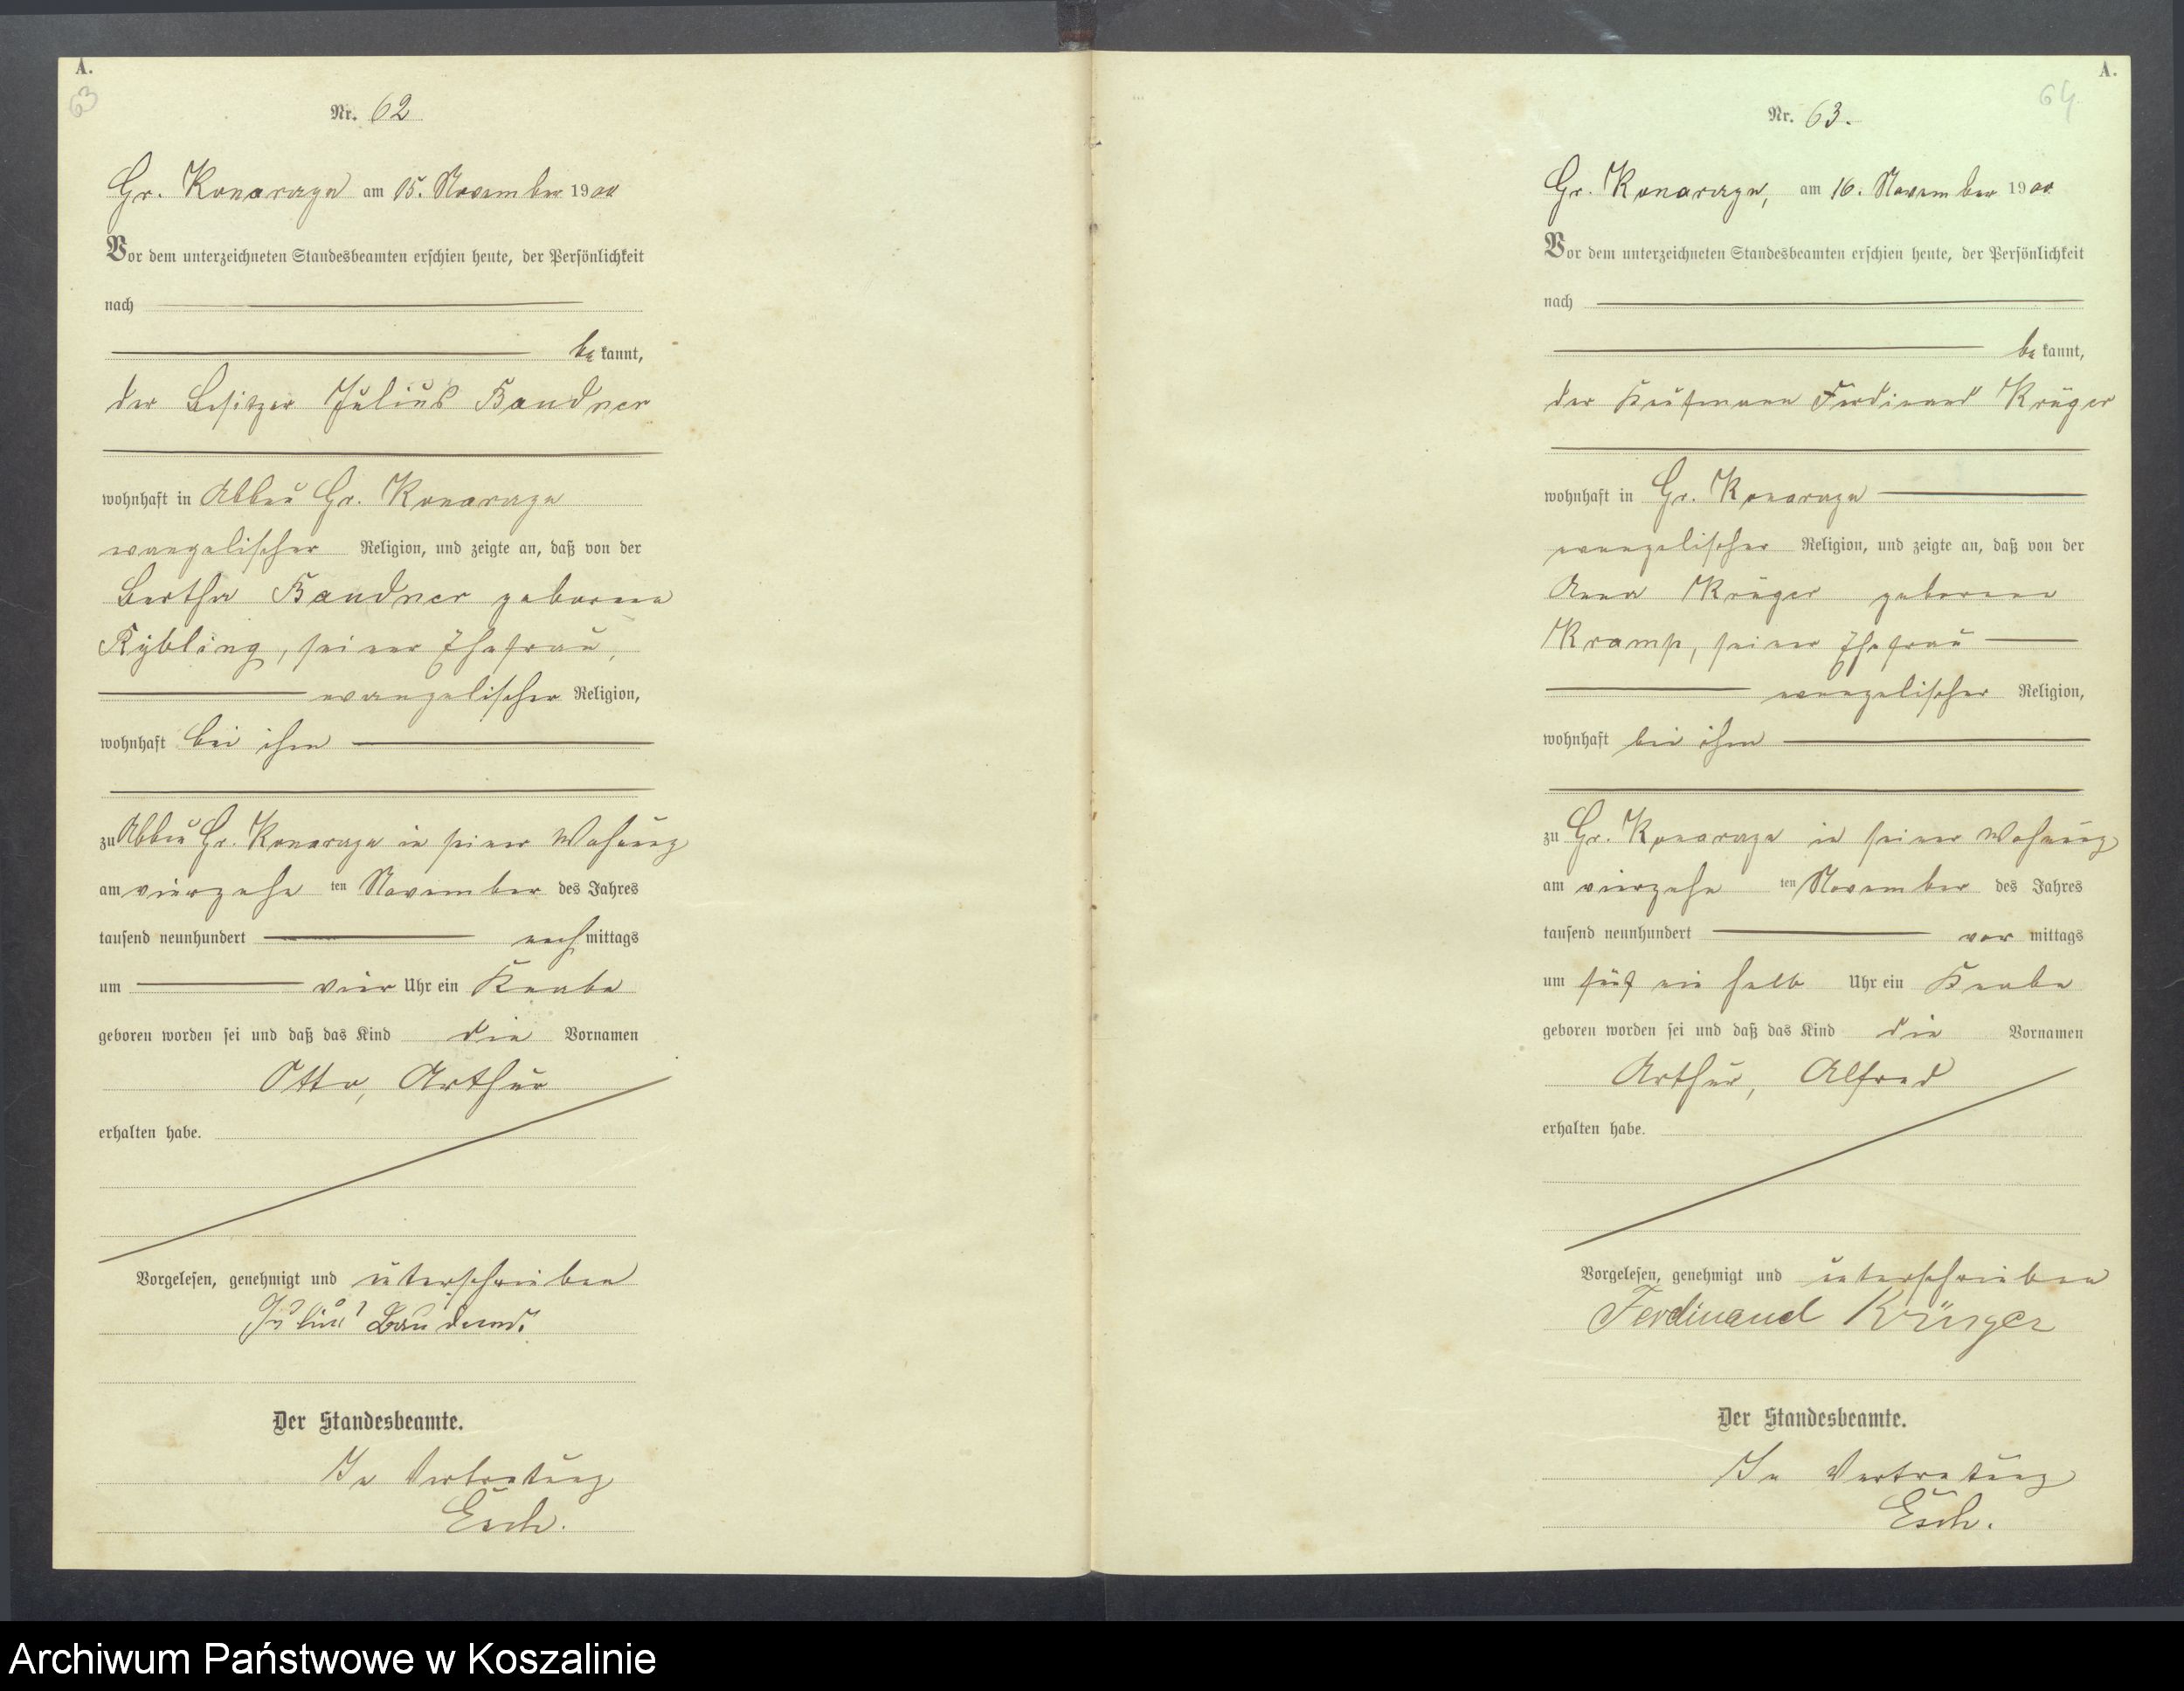 A.
63
Nr. 62
Gr. Konarzyn am 15. November 1900
Vor dem unterzeichneten Standesbeamten erschien heute, der Persönlichkeit
nach
be kannt,
der Besitzer Julius Bandner
wohnhaft in Abbau Gr. Konarzyn
evangelischer Religion, und zeigte an, daß von der
Bertha Bandner geborene
Rybling, seiner Ehefrau,
evangelischer Religion,
wohnhaft bei ihm
zu Abbau Gr. Konarzyn in seiner Wohung
am vierzehn ten November des Jahres
tausend neunhundert nach mittags
um vier Uhr ein Knabe
geboren worden sei und daß das Kind die Vornamen
Otto, Arthur
erhalten habe.
Vorgelesen, genehmigt und unterschrieben
Julius
Der Standesbeamte.
In Vertretung
Esch.
A.
64
Nr. 63.
Gr. Konarzyn, am 16. November 1900
Vor dem unterzeichneten Standesbeamten erschien heute, der Persönlichkeit
nach
be kannt,
der Kaufmann Ferdinand Krüger
wohnhaft in Gr. Konarzyn
evangelischer Religion, und zeigte an, daß von der
Anna Krüger geborene
Kramp, seiner Ehefrau
evangelischer Religion,
wohnhaft bei ihm
zu Gr. Konarzyn in seiner Wohung
am vierzehn ten November des Jahres
tausend neunhundert vor mittags
um fünf ein halb Uhr ein Knabe
geboren worden sei und daß das Kind die Vornamen
Arthur, Alfred
erhalten habe.
Vorgelesen, genehmigt und unterschrieben
Ferdinand Krüger
Der Standesbeamte.
In Vertretung
Esch.
Archiwum Państwowe w Koszalinie